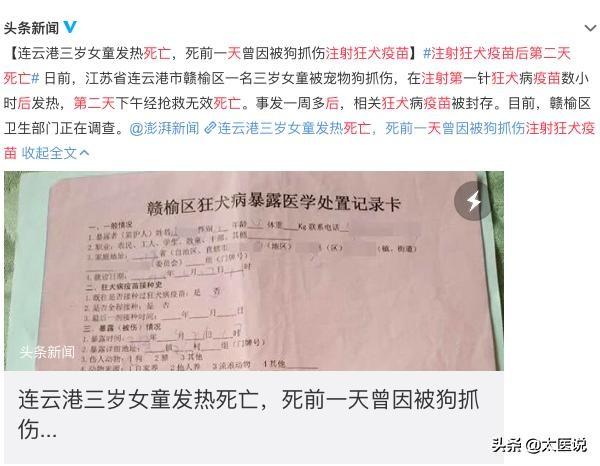 头条新闻
【连云港三岁女童发热死亡，死前一天曾因被狗抓伤注射狂犬疫苗】#注射狂犬疫苗后第二天
死亡# 日前，江苏省连云港市赣榆区一名三岁女童被宠物狗抓伤，在注射第一针狂犬病疫苗数小
时后发热，第二天下午经抢救无效死亡。事发一周多后，相关狂犬病疫苗被封存。目前，赣榆区
卫生部门正在调查。@澎湃新闻 连云港三岁女童发热死亡，死前一天曾因被狗抓伤注射狂犬疫
苗 收起全文
赣榆区狂犬病暴露医学处置记录卡
一、一般情况
1.暴露者（监护人）姓名 性别 年龄 体重 Kg 联系电话
2.职业：农民、工人、学生、教童、干部、其他
3.家庭地址： 省（自治区、直辖市 （地区） （区） （镇、街道）
（委员会） 组（门牌号）
4.就诊日期： 年 月 日 时
二、狂犬病疫苗接种史
1.既往是否接种过狂犬病疫苗：是 否
2.是否全程接种：是 否
3.最后一剂接种时间： 年 月 日
三、暴露（被伤）情况
1.暴露时间： 年 月 日 时
2.暴露详细地址： 镇 村 组（门牌号）
3.伤人动物：1狗 2猫 3其他
头条新闻
连云港三岁女童发热死亡，死前一天曾因被狗抓
伤...
头条 @太医说